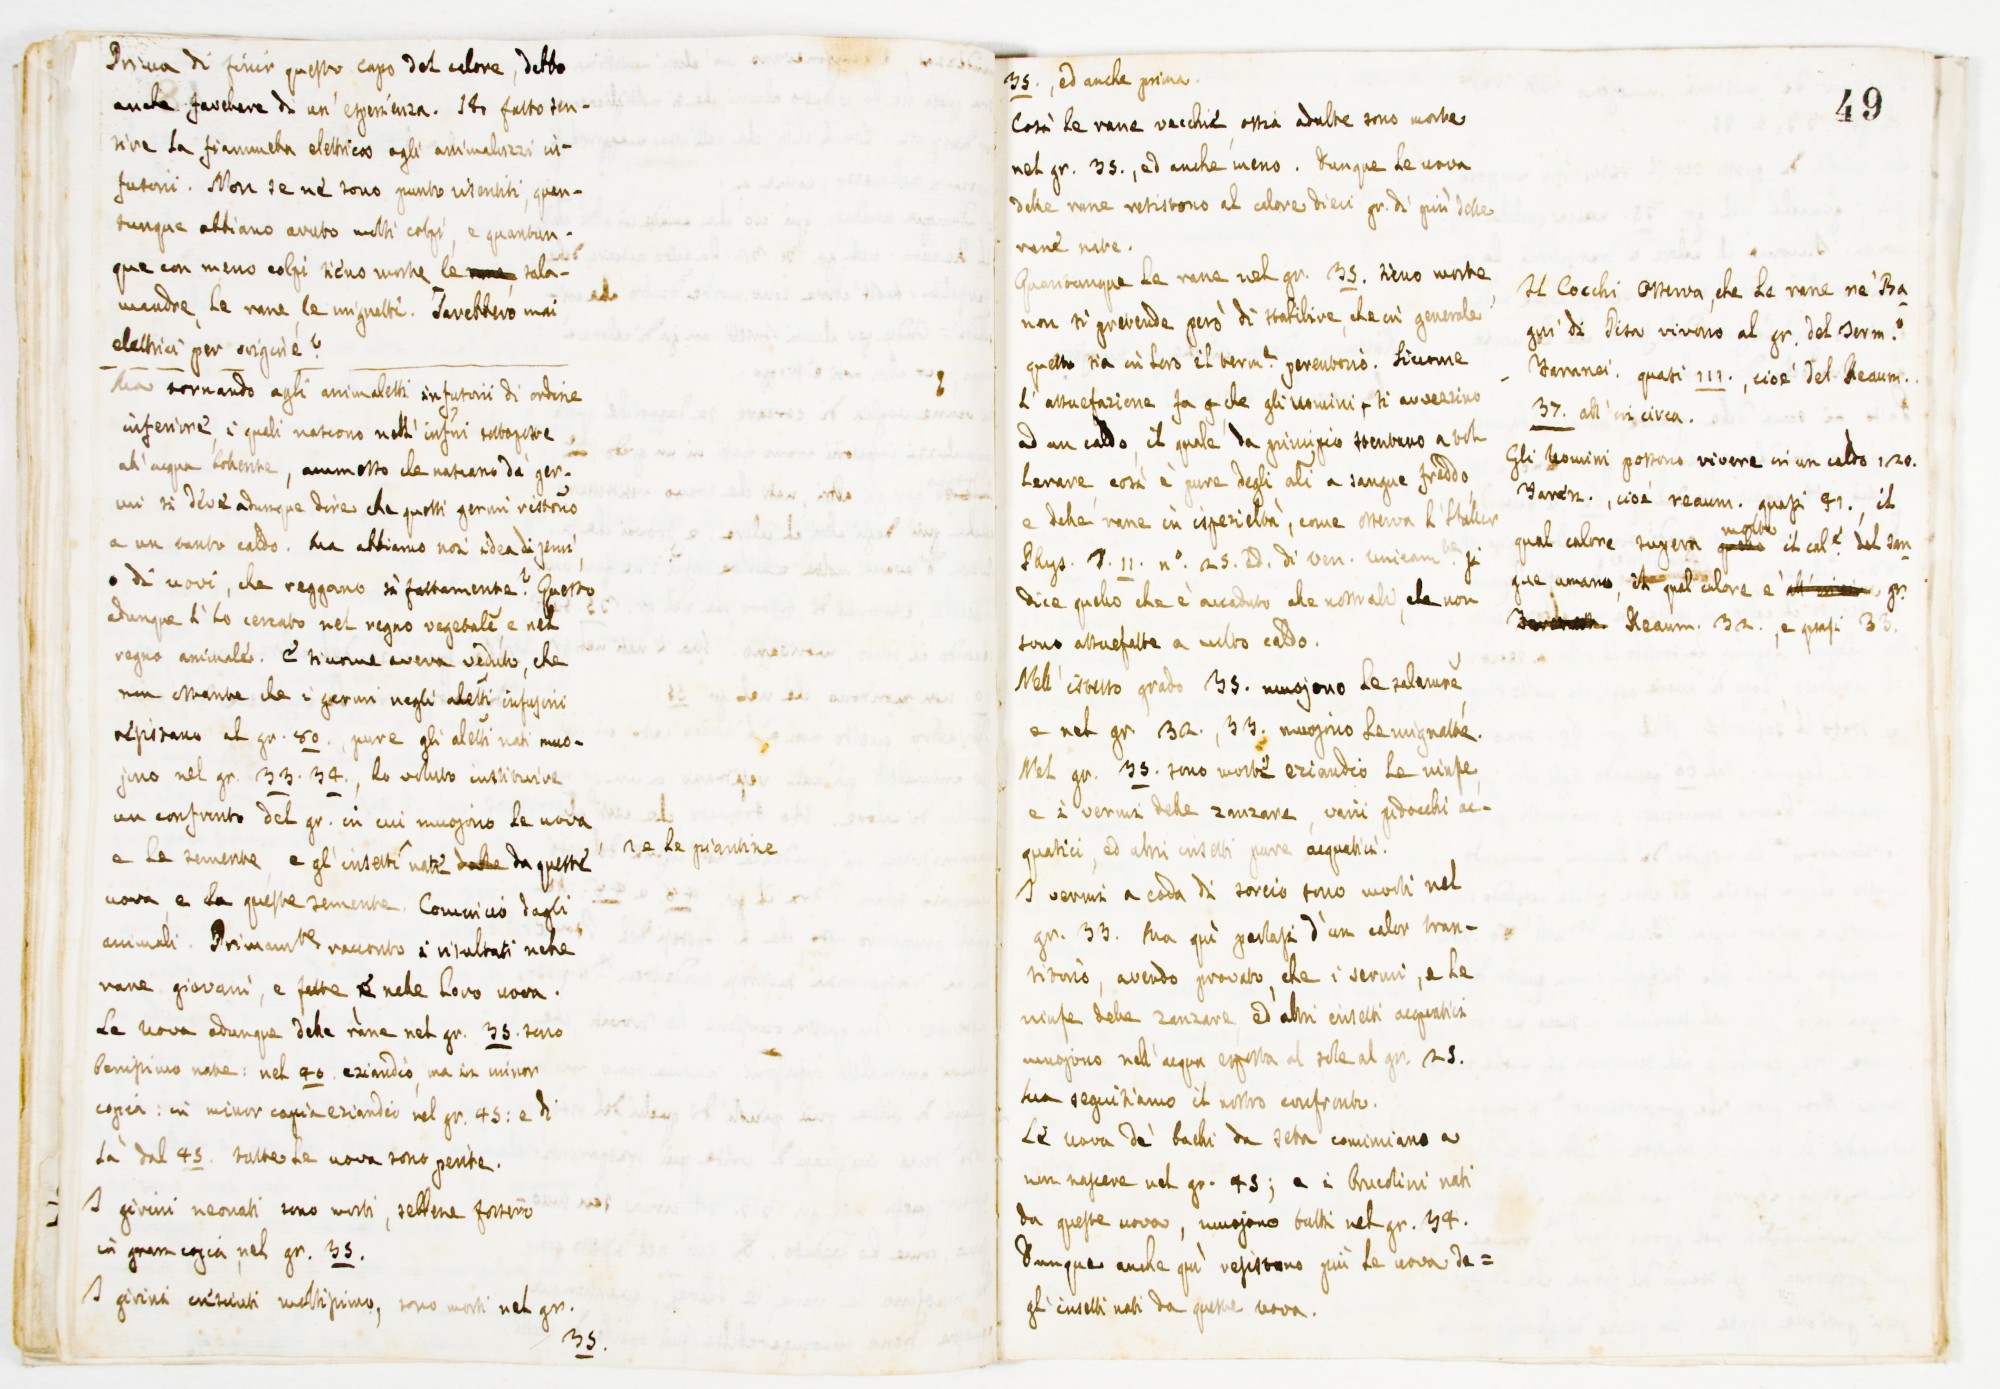 Prima di finir questo capo del calore, debbo
anche favellare di un' esperienza. Ho fatto sen-
tire la fiammella elettrica agli animaluzzi in-
fusorii. Non se ne sono punto risentiti, quan-
tunque abbiano avuto molti colpi, e quantun-
que con meno colpi sieno morte le rane, sala-
mandre, le rane, le mignatte. Sarebbero mai
elettrici per origine?
Ma tornando agli animaletti infusorii di ordine
inferiore, i quali nascono nell' infni sottoposte
all' acqua bollente, ammesso che nascano da ger-
mi si deve adunque dire che questi germi resistono
a un tanto caldo. Ma abbiamo noi idea di semi,
o di uovi, che reggano sì fattamente? Questo
adunque l' ho cercato nel regno vegetale, e nel
regno animale. E siccome aveva veduto, che
non ostante che i germi negli aletti infusorii
resistano al gr. 80., pure gli aletti nati muo-
jono nel gr. 33. 34., ho voluto instituire
un confronto del gr. in cui muojono le uova
e le semente, e gl' insetti nati dalle da queste
, e le piantine
uova, e da queste semente. Comincio dagli
animali. Primamte racconto i risultati nelle
rane giovani, e fatte e nelle loro uova.
Le uova adunque delle rane nel gr. 35. sono
benissimo nate: nel 40. eziandio, ma in minor
copia: in minor copia eziandio nel gr. 45: e di
là dal 45. tutte le uova sono perite.
I girini neonati sono morti, sebbene fossero
in gran copia, nel gr. 35.
I girini cresciuti moltissimo, sono morti nel gr.
35.
49
35., ed anche prima.
Così le rane vecchie, ossia adulte sono morte
nel gr. 35., ed anche meno. Dunque le uova
delle rane resistono al calore dieci gr. di più delle
rane nate.
Quantunque le rane nel gr. 35. sieno morte,
non si pretende però di stabilire, che in generale
questo sia in loro il term.e perentorio. Siccome
l' assuefazione fa che gli uomini si avvezzino
ad un caldo, il quale da principio stentano a tol
lerare, così è pure degli ali a sangue freddo,
e delle rane in ispezieltà, come osserva l' Haller
Phys. T. 11. n.o 25. Ed. di Ven. Unicam.te si
dice quello che è accaduto alle nostrali, che non
sono assuefatte a molto caldo.
Nell' istesso grado 35. muojono le salamre,
e nel gr. 32., 33. muojono le mignatte.
Nel gr. 35. sono morte eziandio le ninfe,
e i vermi delle zanzare, varii pidocchi ac-
quatici, ed altri insetti pure acquatici.
I vermi a coda di sorcio sono morti nel
gr. 33. Ma quì parlasi d' un calor tran-
sitorio, avendo provato, che i vermi, e le
ninfe delle zanzare, ed altri insetti acquatici
muojono nell' acqua esposta al sole al gr. 25.
Ma seguitiamo il nostro confronto.
Le uova de' bachi da seta cominciano a
non nascere nel gr. 45; e i brucolini nati
da queste uova, muojono tutti nel gr. 34.
Dunque anche quì resistono più le uova de=
gl' insetti nati da queste uova.
Il Cocchi osserva, che le rane ne' Ba
gni di Pisa vivono al gr. del term.o
Farenei. quasi 111., cioè del Reaum..
37. all' in circa.
Gli uomini possono vivere in un caldo 120.
Faren., cioè reaum. quasi 41., il
qual calore supera quello molto il cal.e del san
gue umano, il qual calore e gr.
Reaum. 32., e quasi 33.